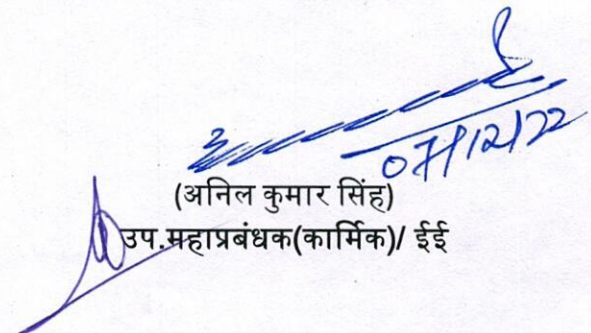 07/12/22
(अनिल कुमार सिंह)
उप.महाप्रबंधक(कार्मिक)/ ईई